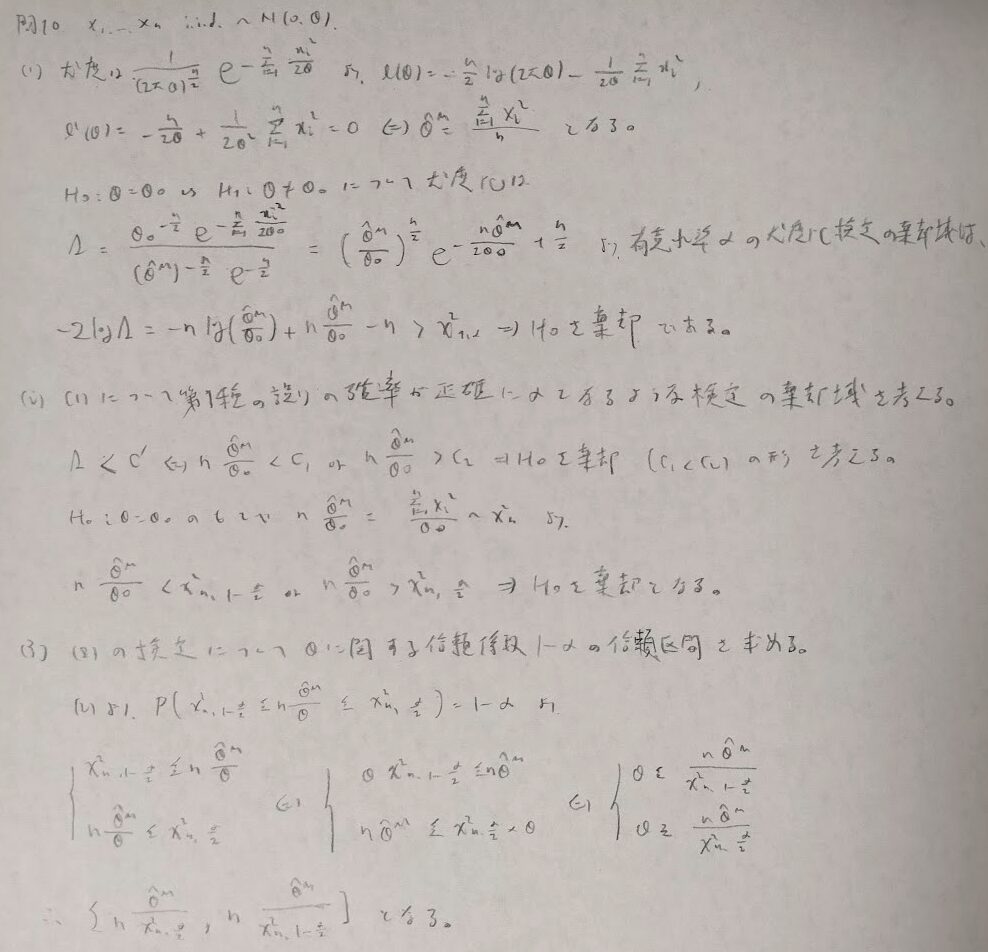 問10 x₁, ... xₙ i.i.d. ~ N(0, θ).
(1) 尤度は 1/(2πθ)^{n/2} e^{-Σ_{i=1}^{n} xᵢ²/2θ} より, l(θ) = -n/2 log(2πθ) - 1/2θ Σ_{i=1}^{n} xᵢ²,
l'(θ) = -n/2θ + 1/2θ² Σ_{i=1}^{n} xᵢ² = 0 ⇔ θ̂ᴹ = Σ_{i=1}^{n} Xᵢ²/n となる。
H₀: θ=θ₀ vs H₁: θ≠θ₀ について尤度比は
Λ = θ₀^{-n/2} e^{-Σ_{i=1}^{n} xᵢ²/2θ₀} / (θ̂ᴹ)^{-n/2} e^{-n/2} = (θ̂ᴹ/θ₀)^{n/2} e^{-nθ̂ᴹ/2θ₀ + n/2} より, 有意水準αの尤度比検定の棄却域は、
-2logΛ = -n log(θ̂ᴹ/θ₀) + n θ̂ᴹ/θ₀ - n > χ²₁,α ⇒ H₀を棄却 である。
(2) (1)について第1種の誤りの確率が正確にαとなるような検定の棄却域を考える。
Λ < C' ⇔ n θ̂ᴹ/θ₀ < C₁ or n θ̂ᴹ/θ₀ > C₂ ⇒ H₀を棄却 (C₁<C₂) の形を考える。
H₀: θ=θ₀ のもとで n θ̂ᴹ/θ₀ = Σ_{i=1}^{n} Xᵢ²/θ₀ ~ χ²ₙ より.
n θ̂ᴹ/θ₀ < χ²_{n, 1-α/2} or n θ̂ᴹ/θ₀ > χ²_{n, α/2} ⇒ H₀を棄却となる。
(3) (2)の検定についてθに関する信頼係数1-αの信頼区間を求める。
(2)より. P(χ²_{n, 1-α/2} ≤ n θ̂ᴹ/θ ≤ χ²_{n, α/2}) = 1-α より
{ χ²_{n, 1-α/2} ≤ n θ̂ᴹ/θ ⇔ { θ χ²_{n, 1-α/2} ≤ nθ̂ᴹ ⇔ { θ ≤ nθ̂ᴹ/χ²_{n, 1-α/2}
n θ̂ᴹ/θ ≤ χ²_{n, α/2} nθ̂ᴹ ≤ χ²_{n, α/2} × θ θ ≥ nθ̂ᴹ/χ²_{n, α/2}
∴ [n θ̂ᴹ/χ²_{n, α/2}, n θ̂ᴹ/χ²_{n, 1-α/2}] となる。